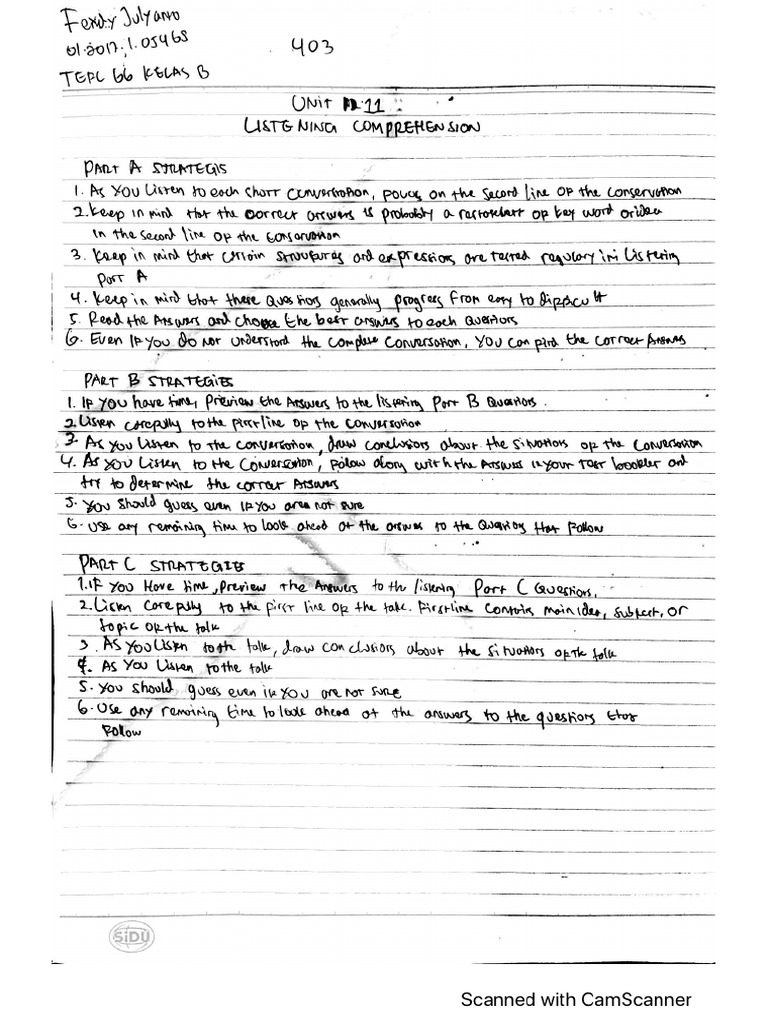 Ferdy Julyano
01.2017.1.05468
403
TEFL 66 KELAS B
UNIT 11
LISTENING COMPREHENSION
PART A STRATEGIS
1. As you listen to each short conversation, focus on the second line of the conservation
2. Keep in mind that the correct answers is probably a restatement of key word or idea
in the second line of the conservation
3. Keep in mind that certain structures and expressions are tested regulary in listening
Part A
4. Keep in mind that these Questions generally progress from easy to difficult
5. Read the Answers and choose the best answers to each Questions
6. Even if you do not understand the complete conversation, you can find the correct Answers
PART B STRATEGIES
1. If you have time, preview the Answers to the listening Part B Questions.
2. Listen carefully to the first line of the conversation
3. As you listen to the conversation, draw conclusions about the situations of the conversation
4. As you listen to the conversation, follow along with the Answers in your test booklet and
try to determine the correct Answers
5. You should guess even if you are not sure
6. Use any remaining time to look ahead at the answers to the Questions that follow
PART C STRATEGIES
1. If you have time, preview the Answers to the listening Part C Questions.
2. Listen carefully to the first line of the talk. First line contains main idea, subject, or
topic of the talk
3. As you listen to the talk, draw conclusions about the situations of the talk
4. As you listen to the talk
5. You should guess even if you are not sure
6. Use any remaining time to look ahead at the answers to the questions that
follow
SiDU
Scanned with CamScanner